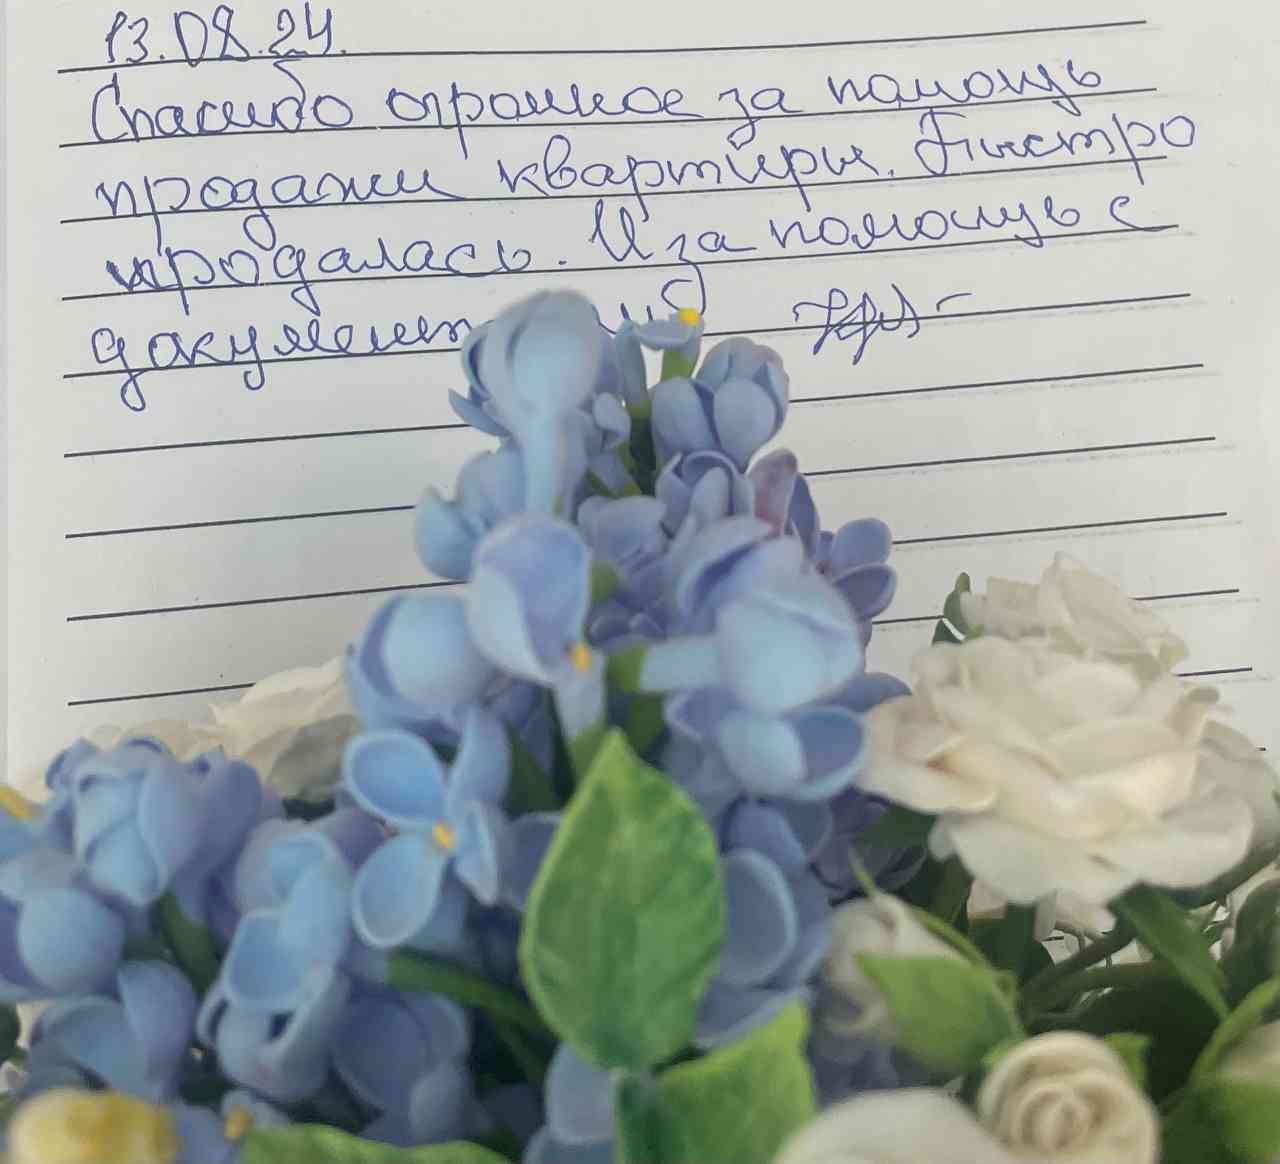 13.08.24.
Спасибо огромное за помощь
продажи квартиры. Быстро
продалась. И за помощь с